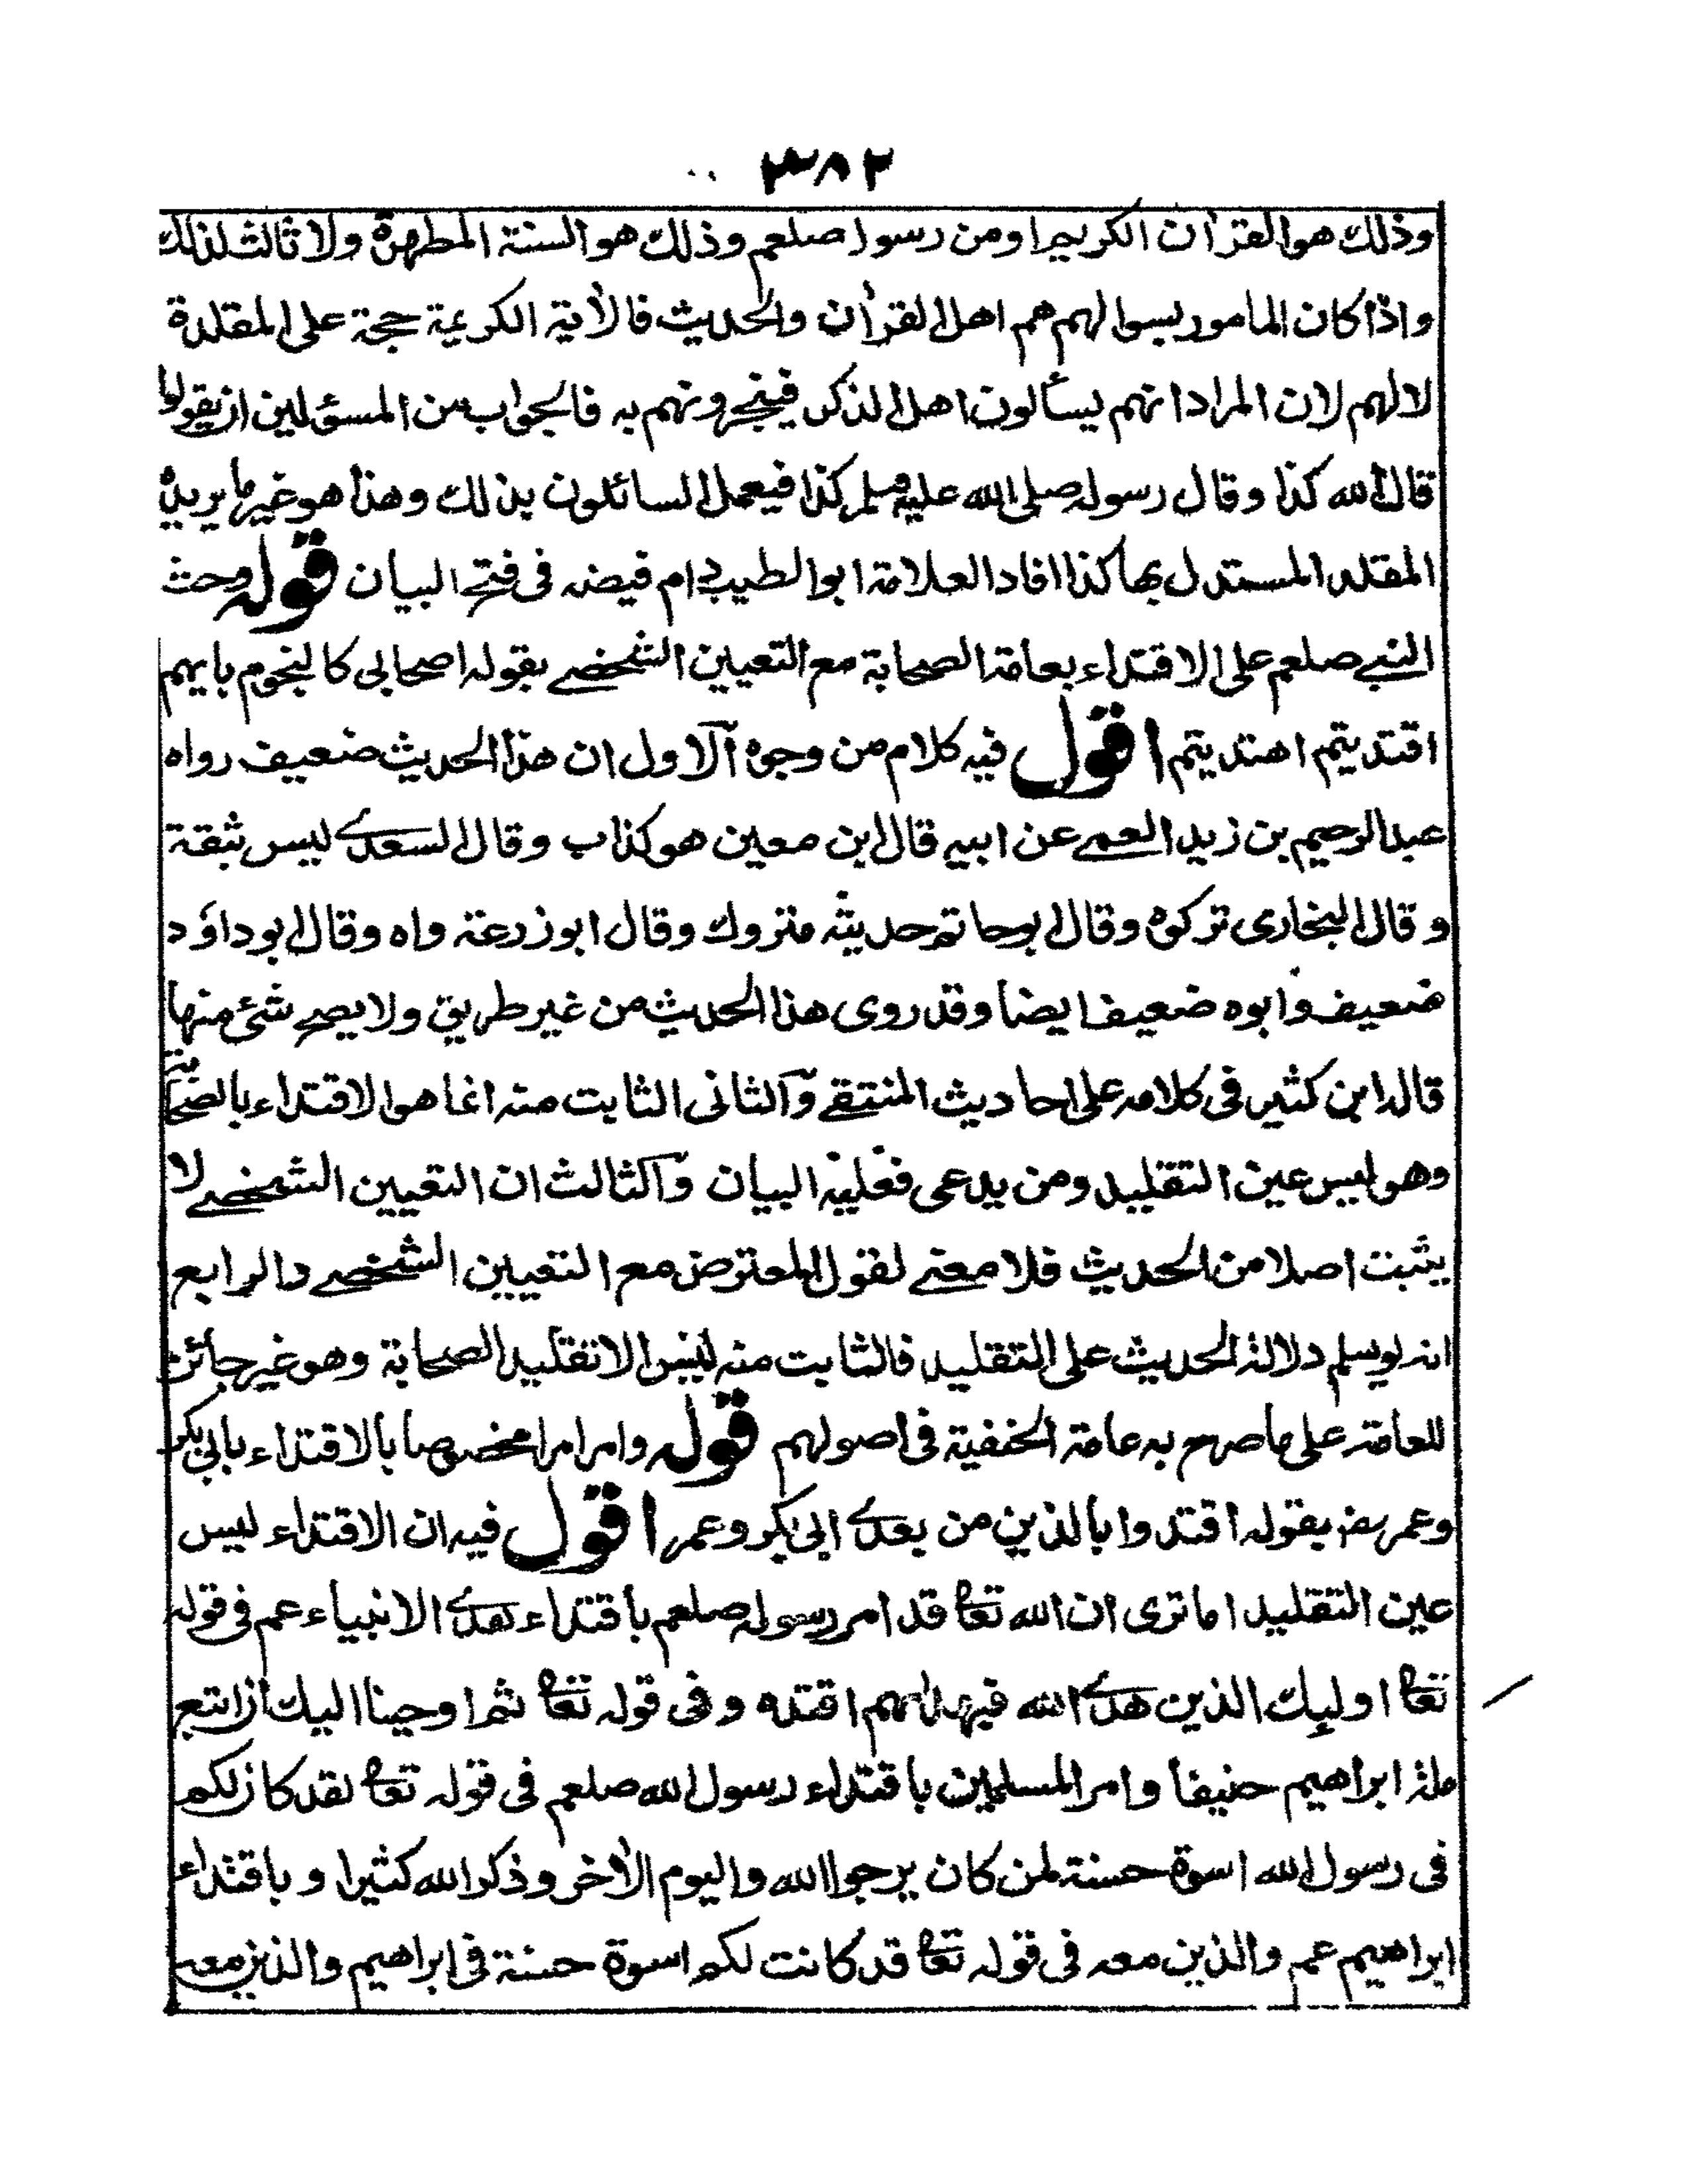 ٣٨٢
وذلك هو القرآن الكريم او من رسوله صلعم وذلك هو السنة المطهرة ولا ثالث لذلك
واذا كان المامور بسوالهم هم اهل القرآن والحديث فالآية الكريمة حجة على المقلدة
لا لهم لان المراد انهم يسألون اهل الذكر فيخبرونهم به فالجواب من المسؤلين ان يقولوا
قال الله كذا وقال رسوله صلى الله عليه وسلم كذا فيعمل السائلون بذلك وهذا هو غير ما يريده
المقلد المستدل بها كذا افاد العلامة ابو الطيب دام فيضه فى فتح البيان قوله وحث
النبي صلعم على الاقتداء بعامة الصحابة مع التعيين الشخصے بقوله اصحابى كالنجوم بايهم
اقتديتم اهتديتم اقول فيه كلام من وجوه الاول ان هذا الحديث ضعيف رواه
عبد الرحيم بن زيد العمے عن ابيه قال ابن معين هو كذاب وقال السعدے ليس بثقة
وقال البخارى تركوه وقال ابو حاتم حديثه متروك وقال ابو زرعة واه وقال ابو داؤد
ضعيف وابوه ضعيف ايضا وقد روى هذا الحديث من غير طريق ولا يصح شئ منها
قاله ابن كثير فى كلامه على احاديث المنتقے والثانى الثابت منه انما هو الاقتداء بالصحابة
وهو ليس عين التقليد ومن يدعى فعليه البيان والثالث ان التعيين الشخصے لا
يثبت اصلا من الحديث فلا معنے لقول المعترض مع التعيين الشخصے والرابع
انه لو سلم دلالة الحديث على التقليد فالثابت منه ليس الا تقليد الصحابة وهو غير جائز
للعامة على ما صرح به عامة الحنفية فى اصولهم قوله وامر امرا مخصوصا بالاقتداء بابى بكر
وعمر رضـ بقوله اقتدوا بالذين من بعدے ابى بكر وعمر اقول فيه ان الاقتداء ليس
عين التقليد اما ترى ان الله تعا قد امر رسوله صلعم باقتداء هدے الانبياء عم فى قوله
تعا اولئك الذين هدے الله فبهداهم اقتده وفى قوله تعا ثم اوحينا اليك ان اتبع
ملة ابراهيم حنيفا وامر المسلمين باقتداء رسول الله صلعم فى قوله تعا لقد كان لكم
فى رسول الله اسوة حسنة لمن كان يرجوا الله واليوم الآخر وذكر الله كثيرا وباقتداء
ابراهيم عم والذين معه فى قوله تعا قد كانت لكم اسوة حسنة فى ابراهيم والذين معه